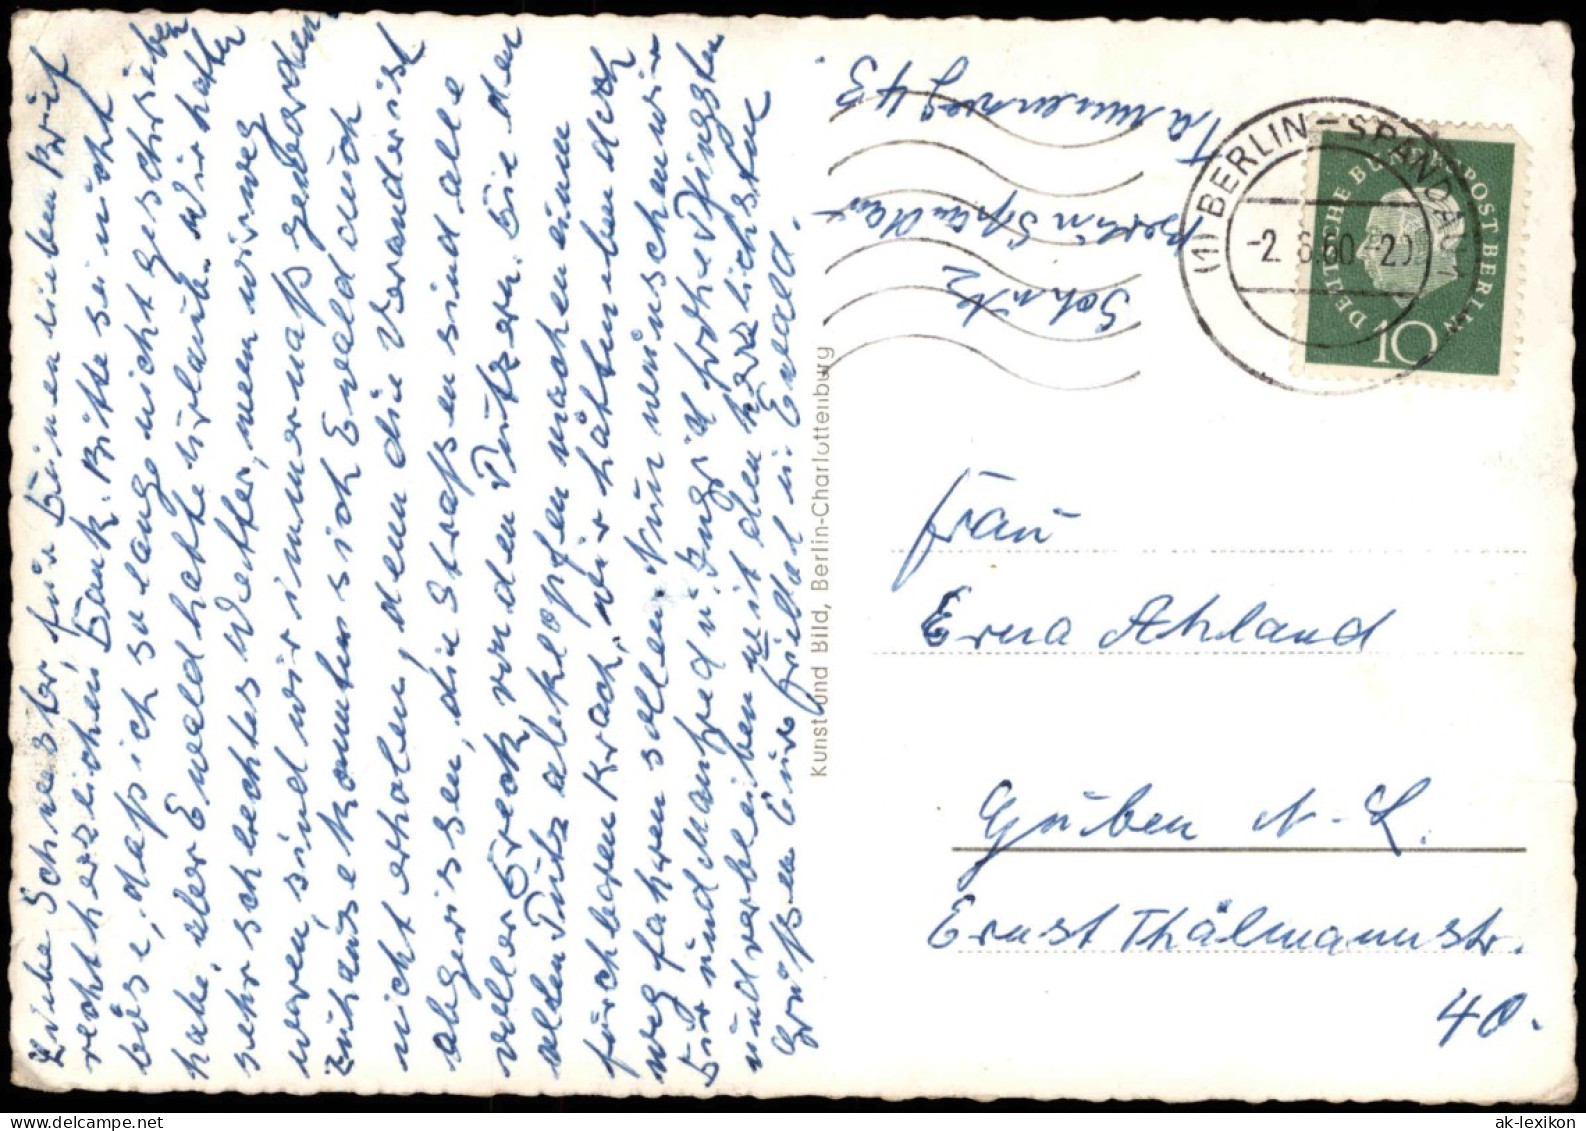 Liebe Schwester, für Deinen lieben Brief
recht herzlichen Dank. Bitte sei nicht
böse, daß ich so lange nicht geschrieben
habe, aber Ewald hatte Urlaub. Wir hatten
sehr schlechtes Wetter, wenn wir weg
waren, sind wir immer naß geworden,
zuhause konnte sich Ewald auch
nicht erholen, denn die Veranda ist
abgerissen, die Straßen sind alle
voller Dreck, von den Putzern. Die den
alten Putz abklopfen machen einen
fürchbaren Krach, wir hätten eben doch
weg fahren sollen. Nun wünschen wir
Dir und Manfred u. Ingrid frohe Pfingsten
und verbleiben mit den herzlichsten
Grüßen Eure Friedel u Ewald.
Kunst und Bild, Berlin-Charlottenburg
Schulz
Berlin Spandau
Tannenweg 43.
(1) BERLIN-SPANDAU 1
-2. 6.60 -20
DEUTSCHE BUNDESPOST BERLIN
10
Frau
Erna Ahland
Guben N-L.
Ernst Thälmannstr.
40.
ak-lexikon